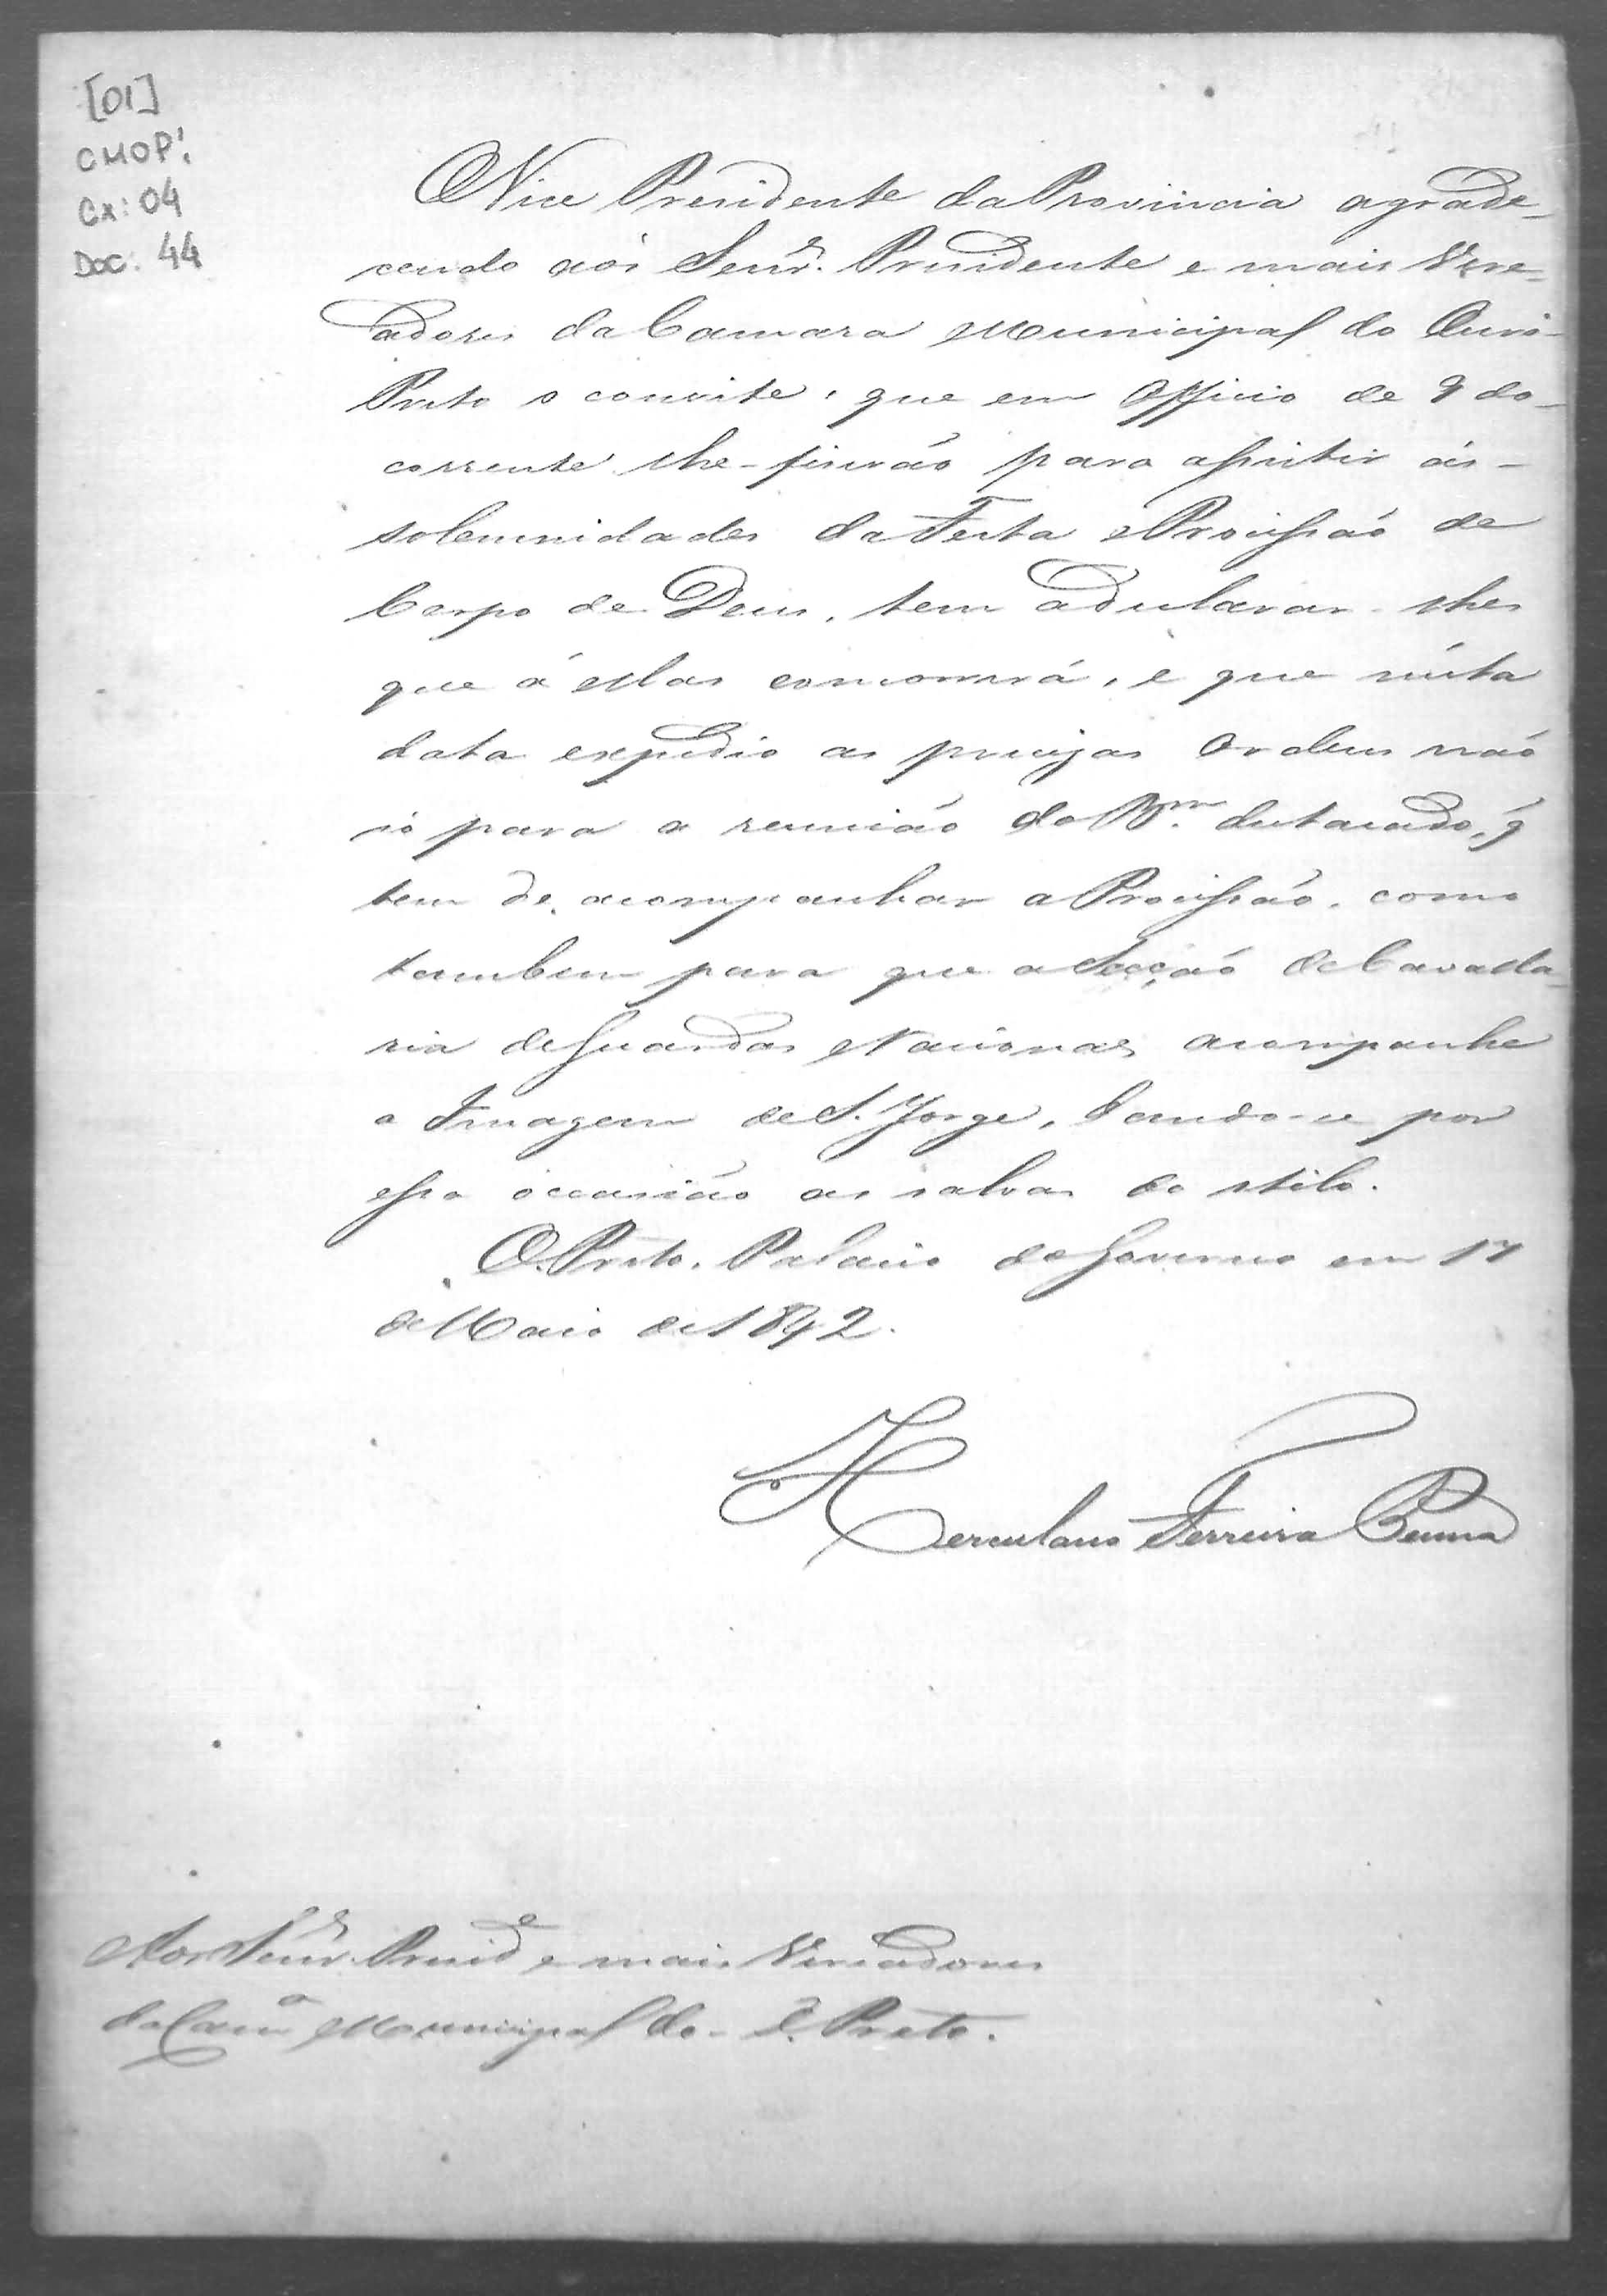 [01]
CMOP!
Cx: 04
Doc: 44
O Vice Presidente da Provincia agrade-
cendo aos Senr.es Presidente e mais Vere-
adores da Camara Municipal do Ouro-
Preto o convite, que em Officio de 9 do-
corrente lhe-fiserão para assistir ás-
solemnidades da Festa e Procissão de
Corpo de Deus, tem a declarar-lhes
que á ellas concorrerá, e que n'esta
data expedio as precizas Ordens não
só para a reunião do B.m destacado, q
tem de acompanhar a Procissão, como
tambem para que a Secção de Cavalla-
ria de Guardas Nacionaes acompanhe
a Imagem de S. Jorge, dando-se por
essa occasião as salvas do stilo.
O. Preto. Palacio do Governo em 17
de Maio de 1842.
Herculano Ferreira Penna
Aos Senr.es Presid.e e mais Vereadores
da Cam.a Municipal do- O. Preto.